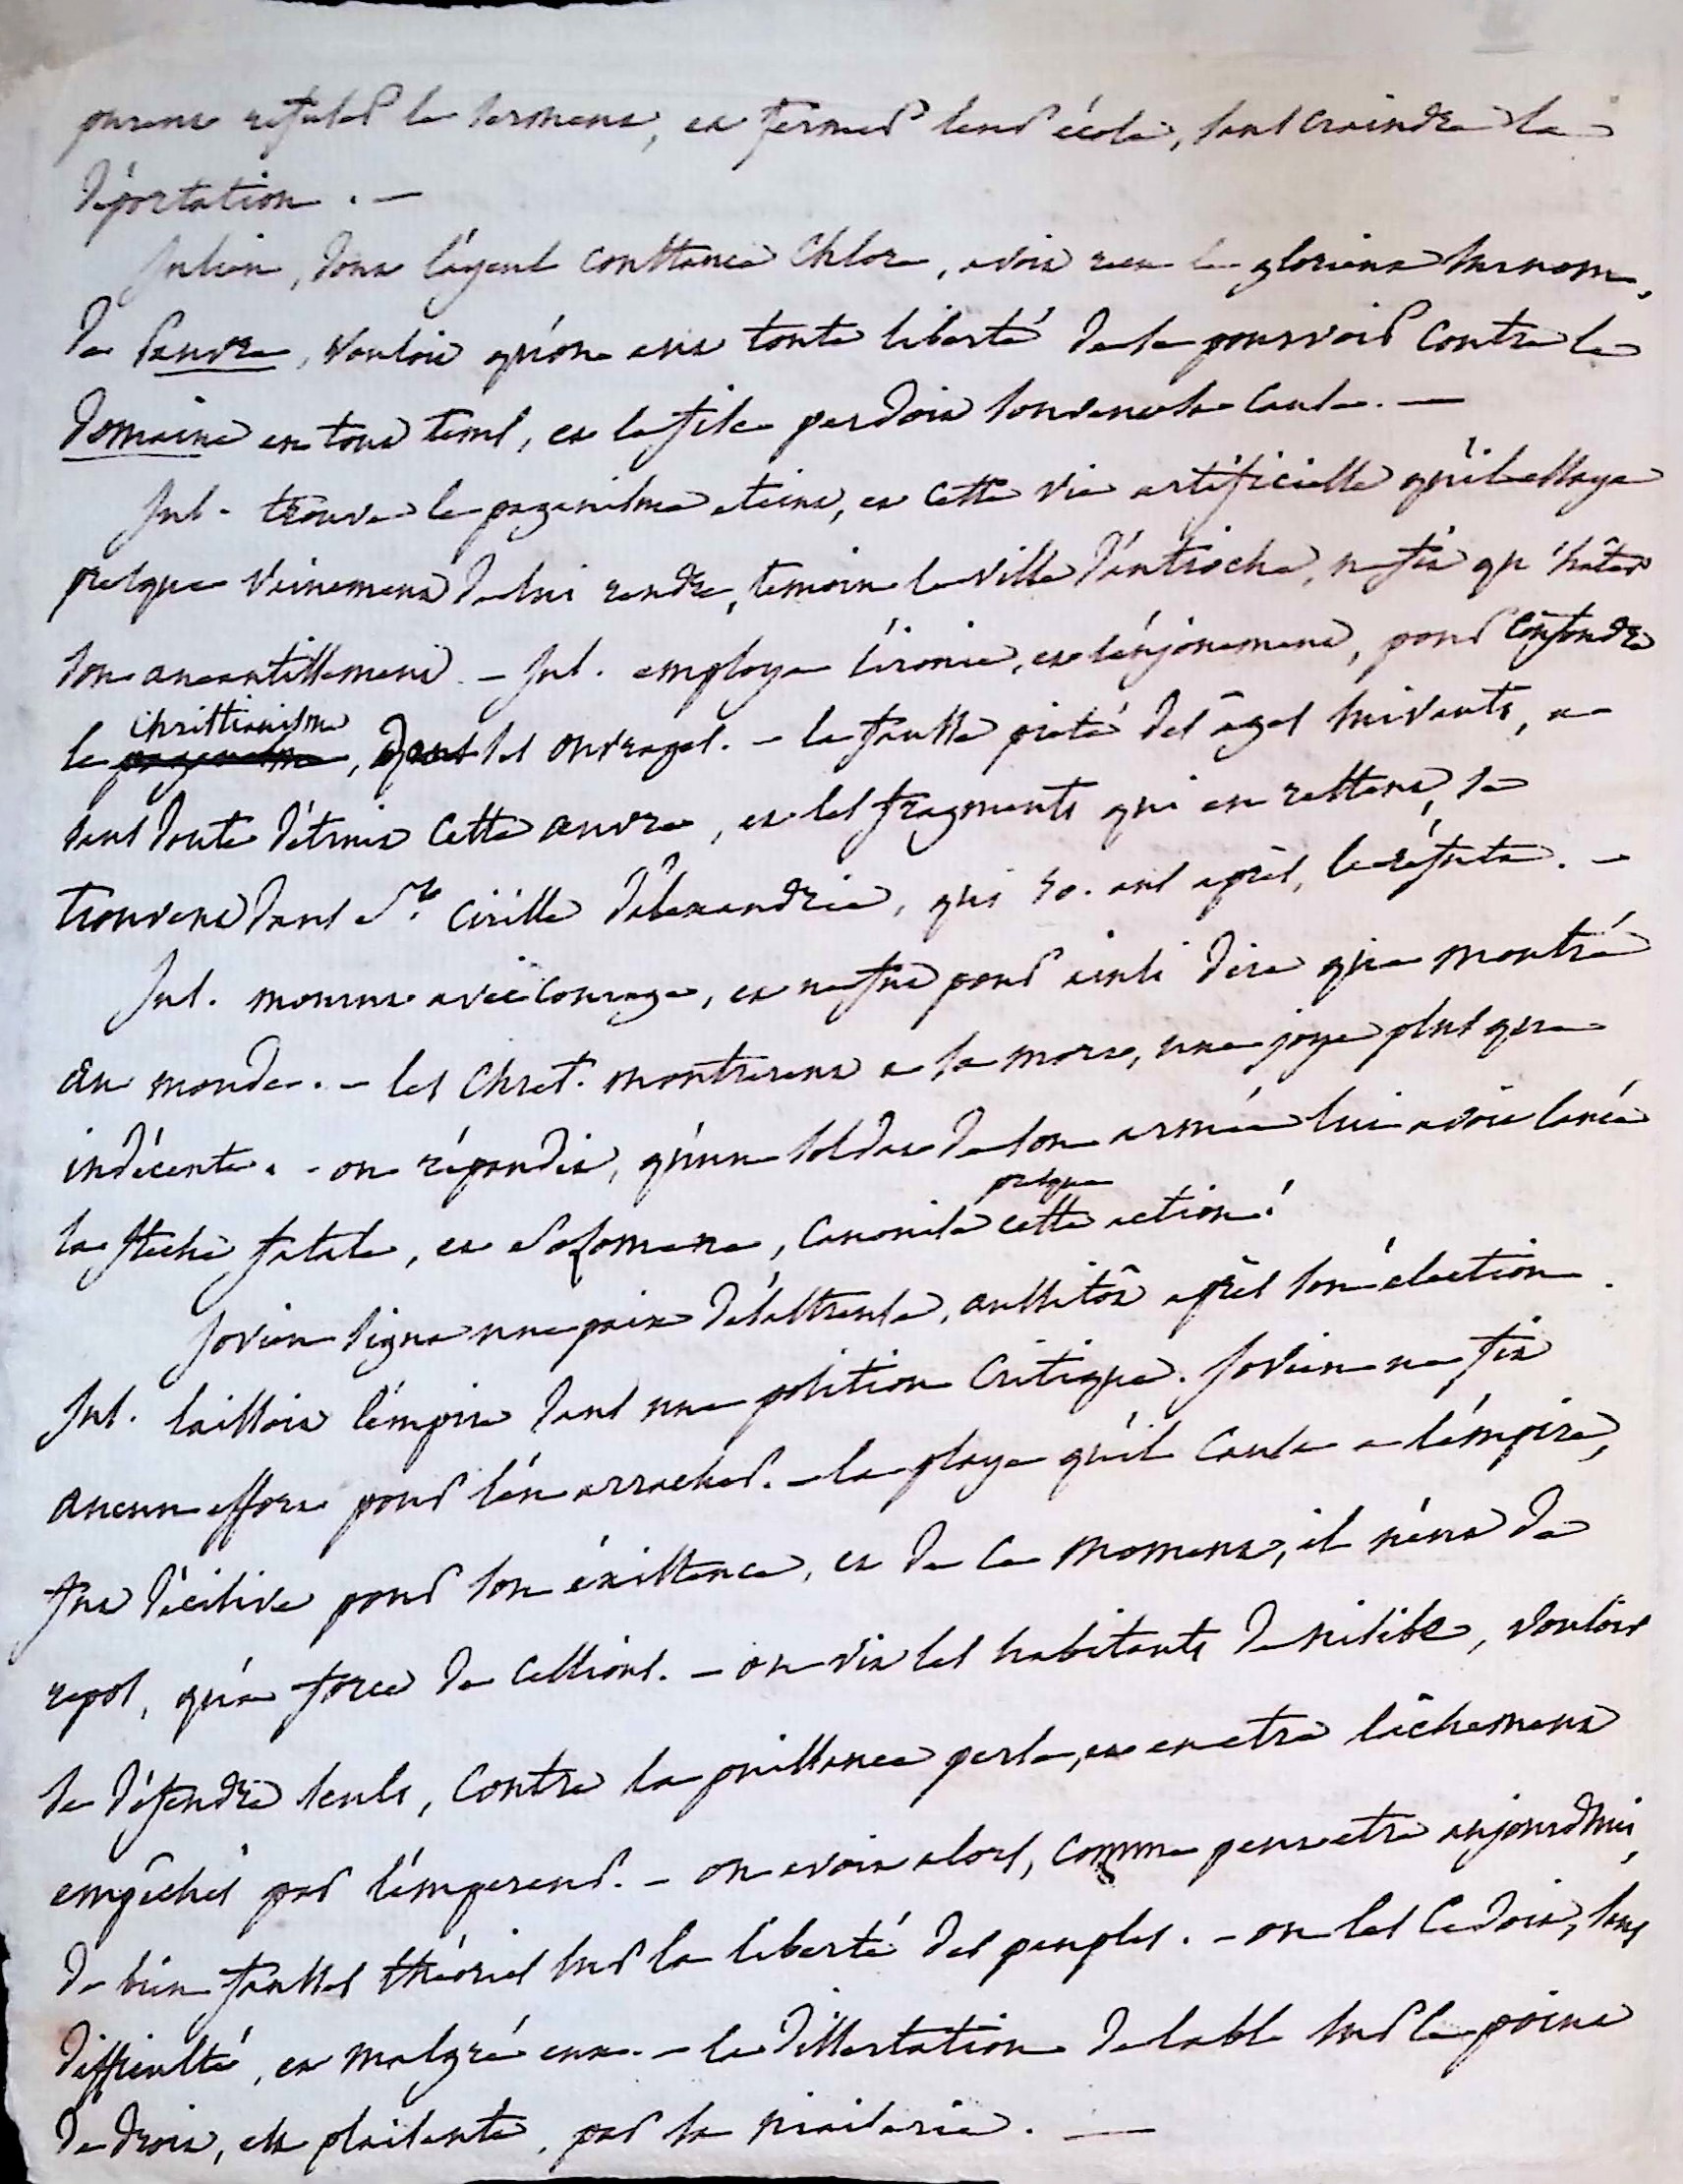 purent refuser le serment, et fermer leur école, sans craindre la
déportation. —
Julien, dont l'ayeul Constance Chlore, avoit reçu le glorieux surnom,
de Pauvre, vouloit qu'on eut toute liberté de se pourvoir contre le
domaine en tout tems, et le fisc perdoit souvent sa cause. —
Jul. trouva le paganisme éteint, et cette vie artificielle qu'il essaya
presque vainement de lui rendre, temoin la ville d'antioche, ne fit qu'hâter
son aneantissement. — Jul. employa l'ironie, et l'enjouement, pour confondre
le paganisme christianisme, dans ses ouvrages. — la fausse piété des âges suivants, a
sans doute détruit cette œuvre, et les fragments qui en restent, se
trouvent dans St. Cirille d'alexandrie, qui 50. ans après, le réfuta. —
Jul. mourut avec courage, et ne fut pour ainsi dire que montré
au monde. — les chret. montrerent a sa mort, une joye plus que
indécente. - on répandit, qu'un soldat de son armée lui avoit lancé
la fleche fatale, et Sozomene, canonise presque cette action!
Jovien signa une paix désastreuse, aussitôt après son élection.
Jul. laissoit l'empire dans une position critique. Jovien ne fit
aucun effort pour l'en arracher. — la playe qu'il causa a l'empire,
fut décisive pour son éxistence, et de ce moment, il n'eut de
repos, qu'a force de cessions. — on vit les habitants de nisibe, vouloir
se défendre seuls, contre la puissance perse, et en etre lâchement
empêchés par l'empereur. — on avoit alors, comme peut etre aujourdhui,
de bien fausses théories sur la liberté des peuples. — on les cedoit, sans
difficulté, et malgré eux. — la dissertation de l'abbé sur le point
de droit, est plaisante, par sa niaiserie. —